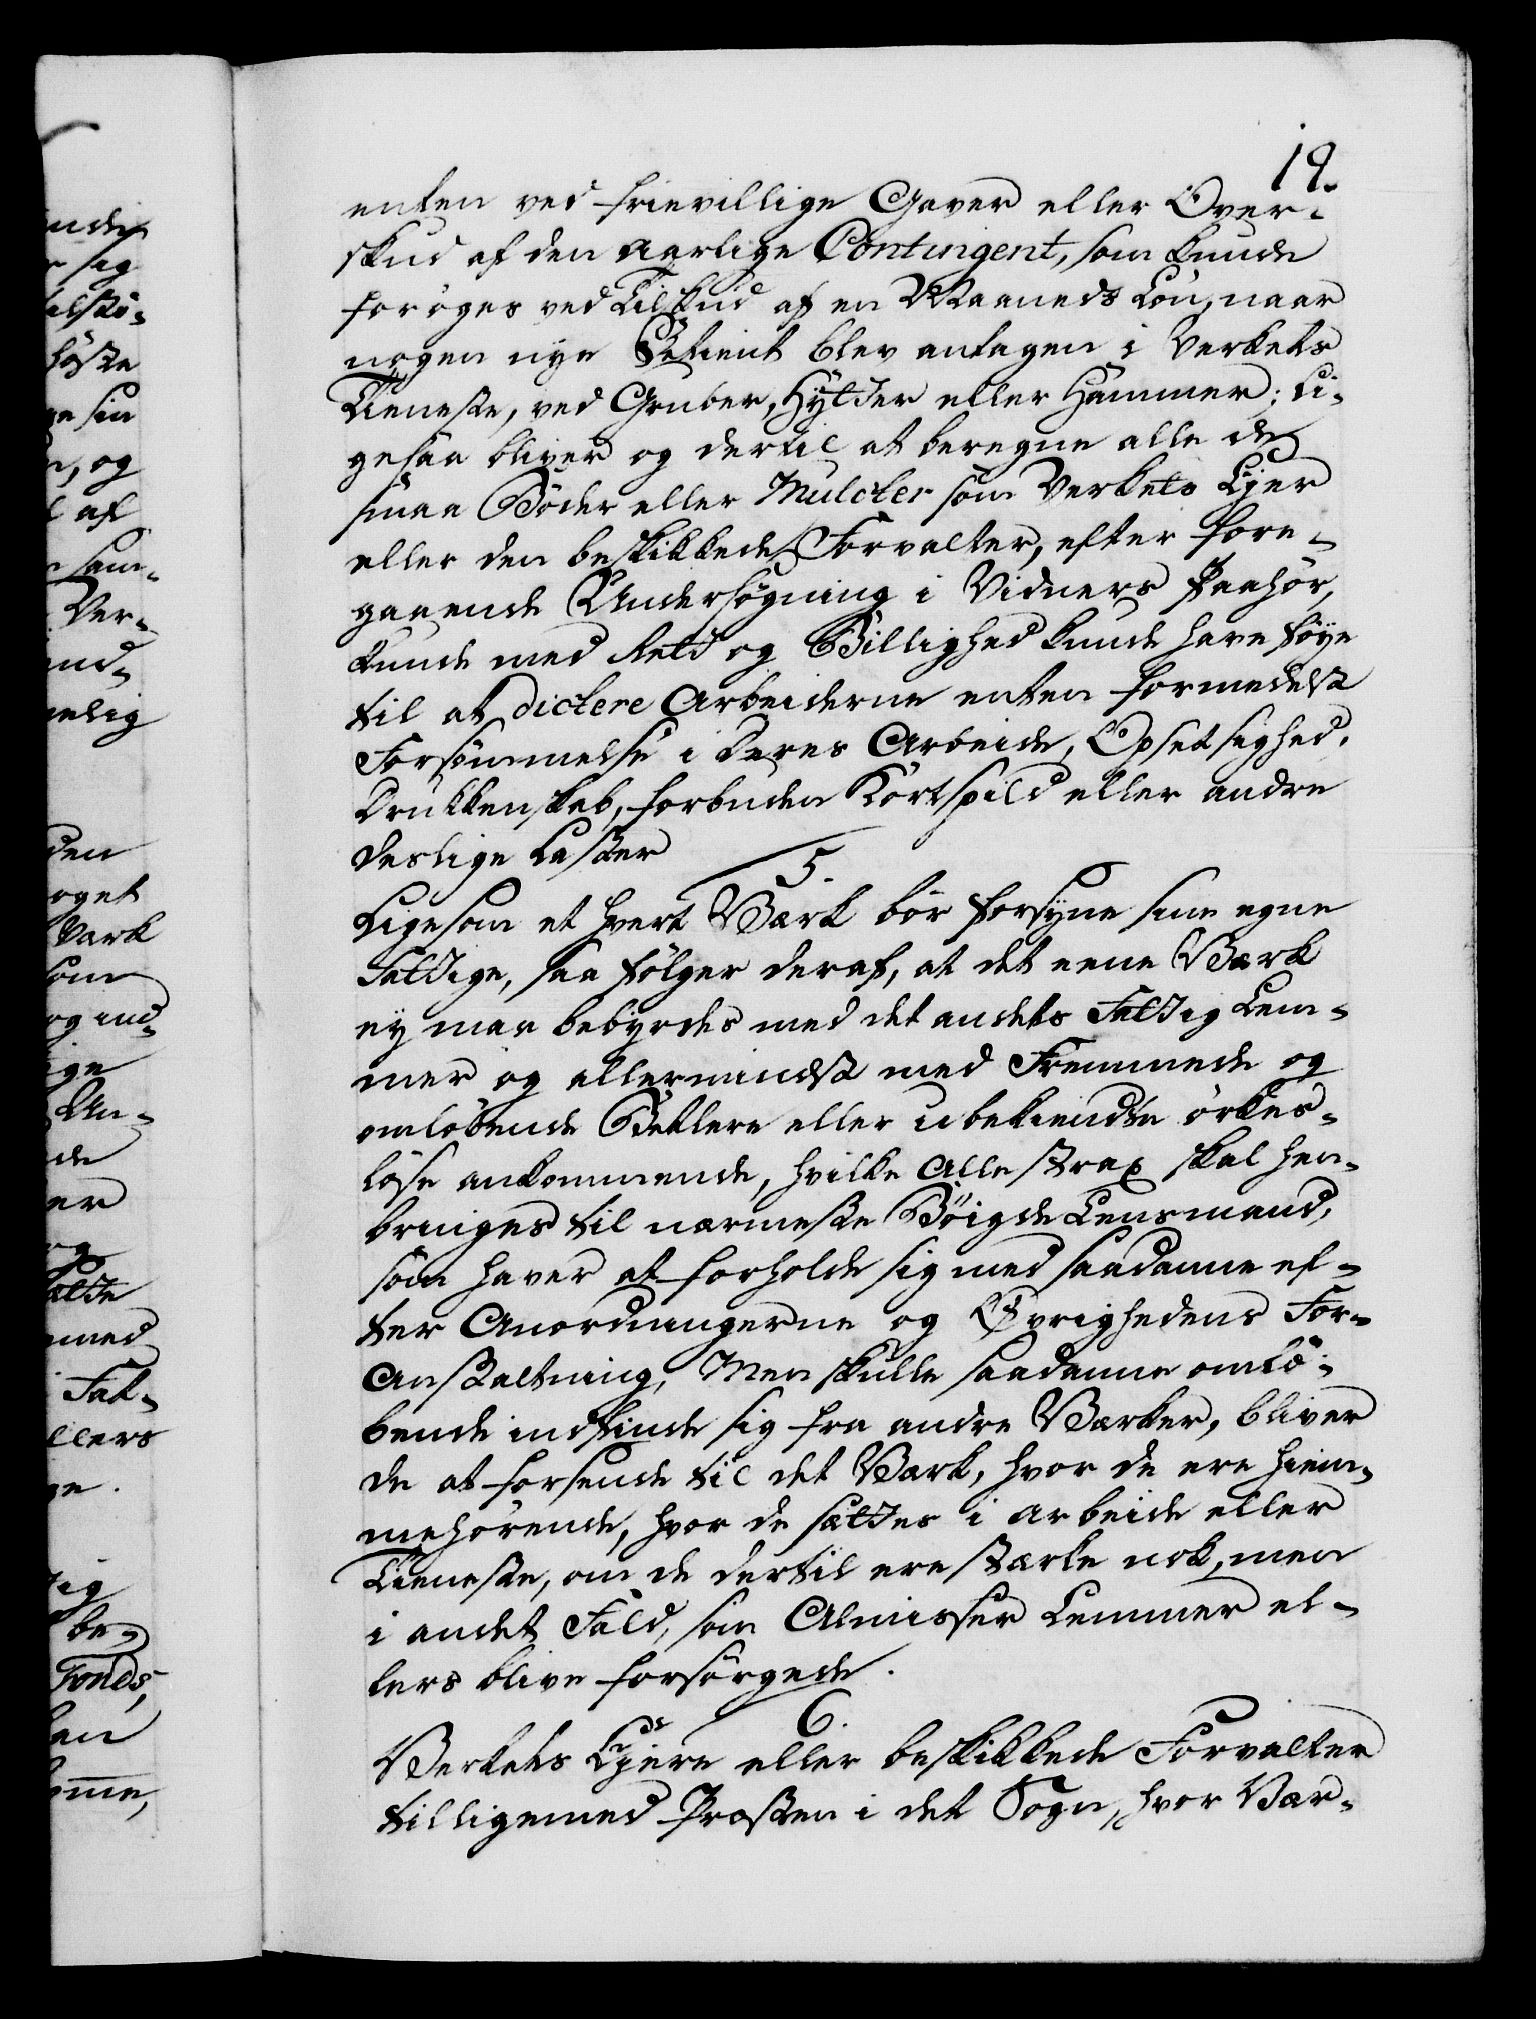 19.
enten ved frievillige Gaver eller Over-
skud af den aarlige Contingent, som kunde
forøges ved Tilskud af en Maaneds Løn, naar
nogen nye Betient blev antagen i Verkets
Tieneste, ved Gruber, Hytter eller Hammer; li-
gesaa bliver og dertil at beregne alle de
smaa Bøder eller Mulcter som Verkets Ejer
eller den beskikkede Forvalter, efter fore-
gaaende Undersøgning i Vidners Paahør,
kunde med Rett og Billighed kunde have føye
til at dictere Arbeiderne enten formedelst
Forsømmelse i deres Arbeide, Opsetsighed,
Drukkenskab, forbuden Kortspild eller andre
deslige Laster
5.
Ligesom et hvert Værk bør forsyne sine egne
Fattige, saa følger deraf, at det eene Værk
ey maa bebyrdes med det andets Fattig Lem-
mer og allermindst med Fremmede og
omløbende Betlere eller ubekiendte ørkes-
løse ankommende, hvilke alle strax skal hen-
bringes til nærmeste Bøigde Lensmand,
som haver at forholde sig med saadanne ef-
ter Anordningerne og Øvrighedens For-
Anstaltning, Men skulle saadanne omlø-
bende indfinde sig fra andre Værker, bliver
de at forsende til det Værk, hvor de ere hiem-
mehørende, hvor de sættes i Arbeide eller
Tieneste, om de dertil ere stærke nok, men
i andet Fald, som Almisser Lemmer el-
lers blive forsørgede.
6.
Verkets Ejere eller beskikkede Forvalter
tilligemed Præsten i det Sogn, hvor Vær-
nde
r sig
alskø-
høste
ge sin
n, og
l af
n sam-
Ver-
ind-
nelig
den
oget
Værk
som
og ind-
ige
Un-
de
er
og
ætte
med
Fat-
llers
ge.
tig
be-
Fonds,
en
ome,